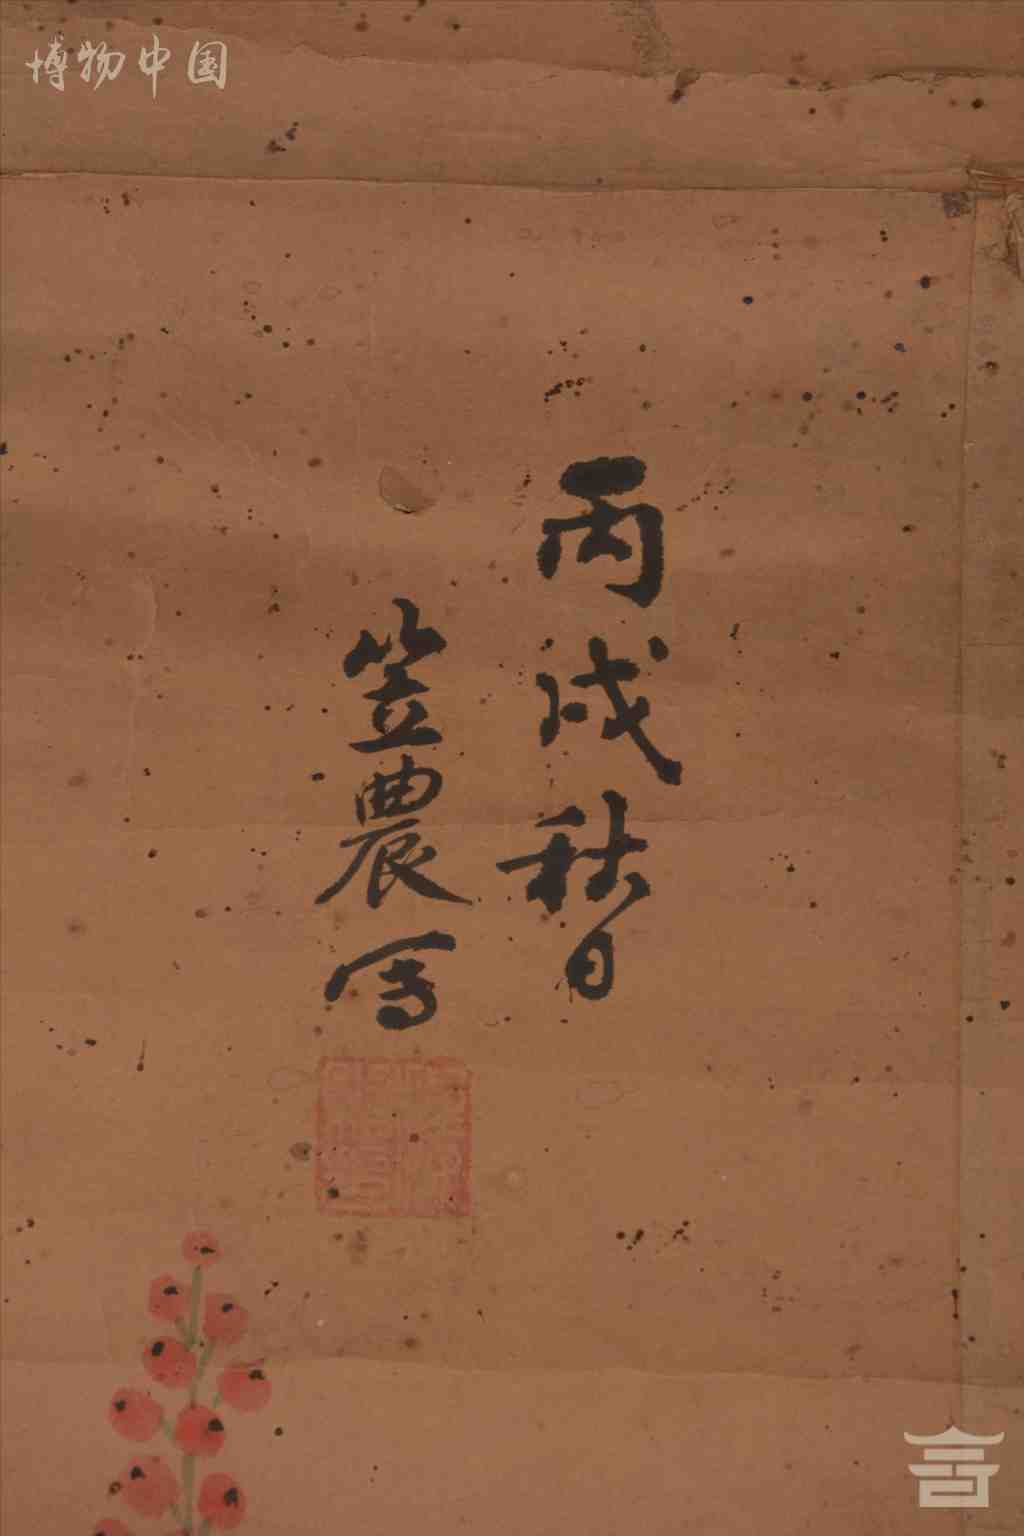 博物中国
丙戌秋日
笠農写